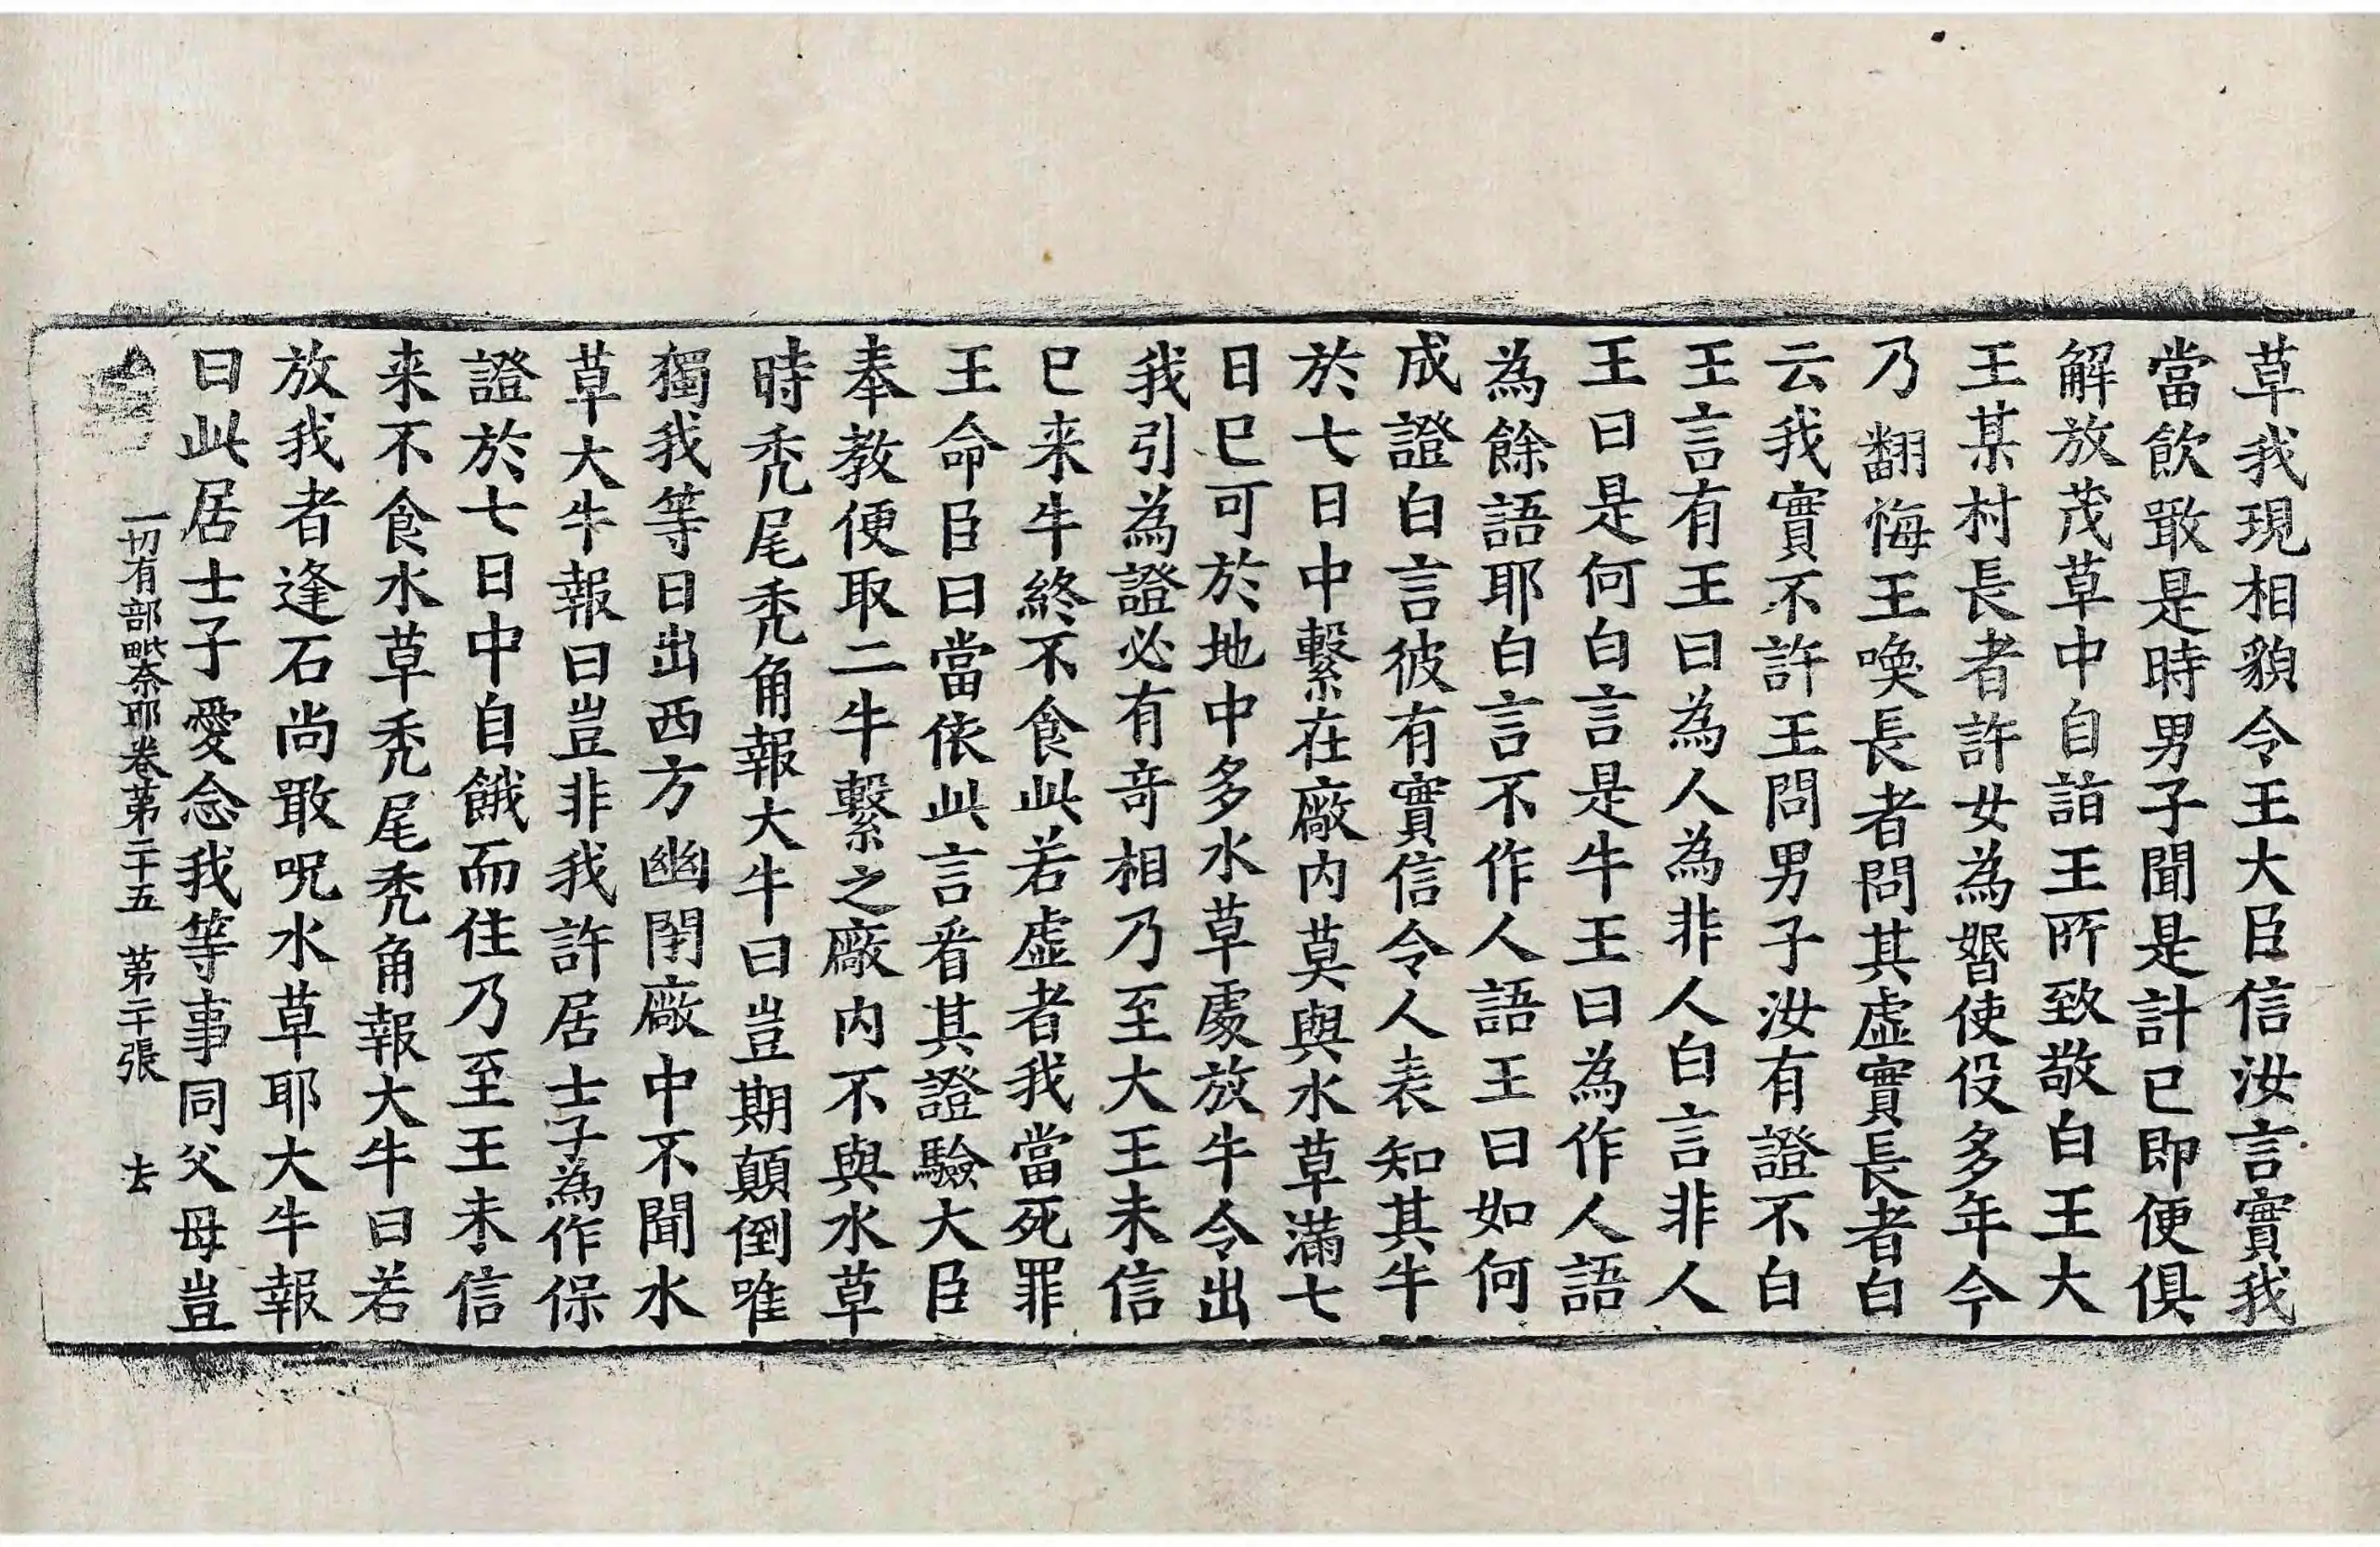 草我現相貌令王大臣信汝言實我
當飲噉是時男子聞是計已即便俱
解放茂草中自詣王所致敬白王大
王某村長者許女為婚使役多年今
乃翻悔王喚長者問其虛實長者白
云我實不許王問男子汝有證不白
王言有王曰為人為非人白言非人
王曰是何白言是牛王曰為作人語
為餘語耶白言不作人語王曰如何
成證白言彼有實信令人表知其牛
於七日中繫在廠內莫與水草滿七
日已可於地中多水草處放牛令出
我引為證必有奇相乃至大王未信
已来牛終不食此若虛者我當死罪
王命臣曰當依此言看其證驗大臣
奉教便取二牛繫之廠内不與水草
時禿尾禿角報大牛曰豈期顛倒唯
獨我等日出西方幽閉廠中不聞水
草大牛報曰豈非我許居士子為作保
證於七日中自餓而住乃至王未信
来不食水草禿尾禿角報大牛曰若
放我者逢石尚噉呪水草耶大牛報
曰此居士子愛念我等事同父母豈
一切有部毗奈耶卷第二十五 第二十張 去